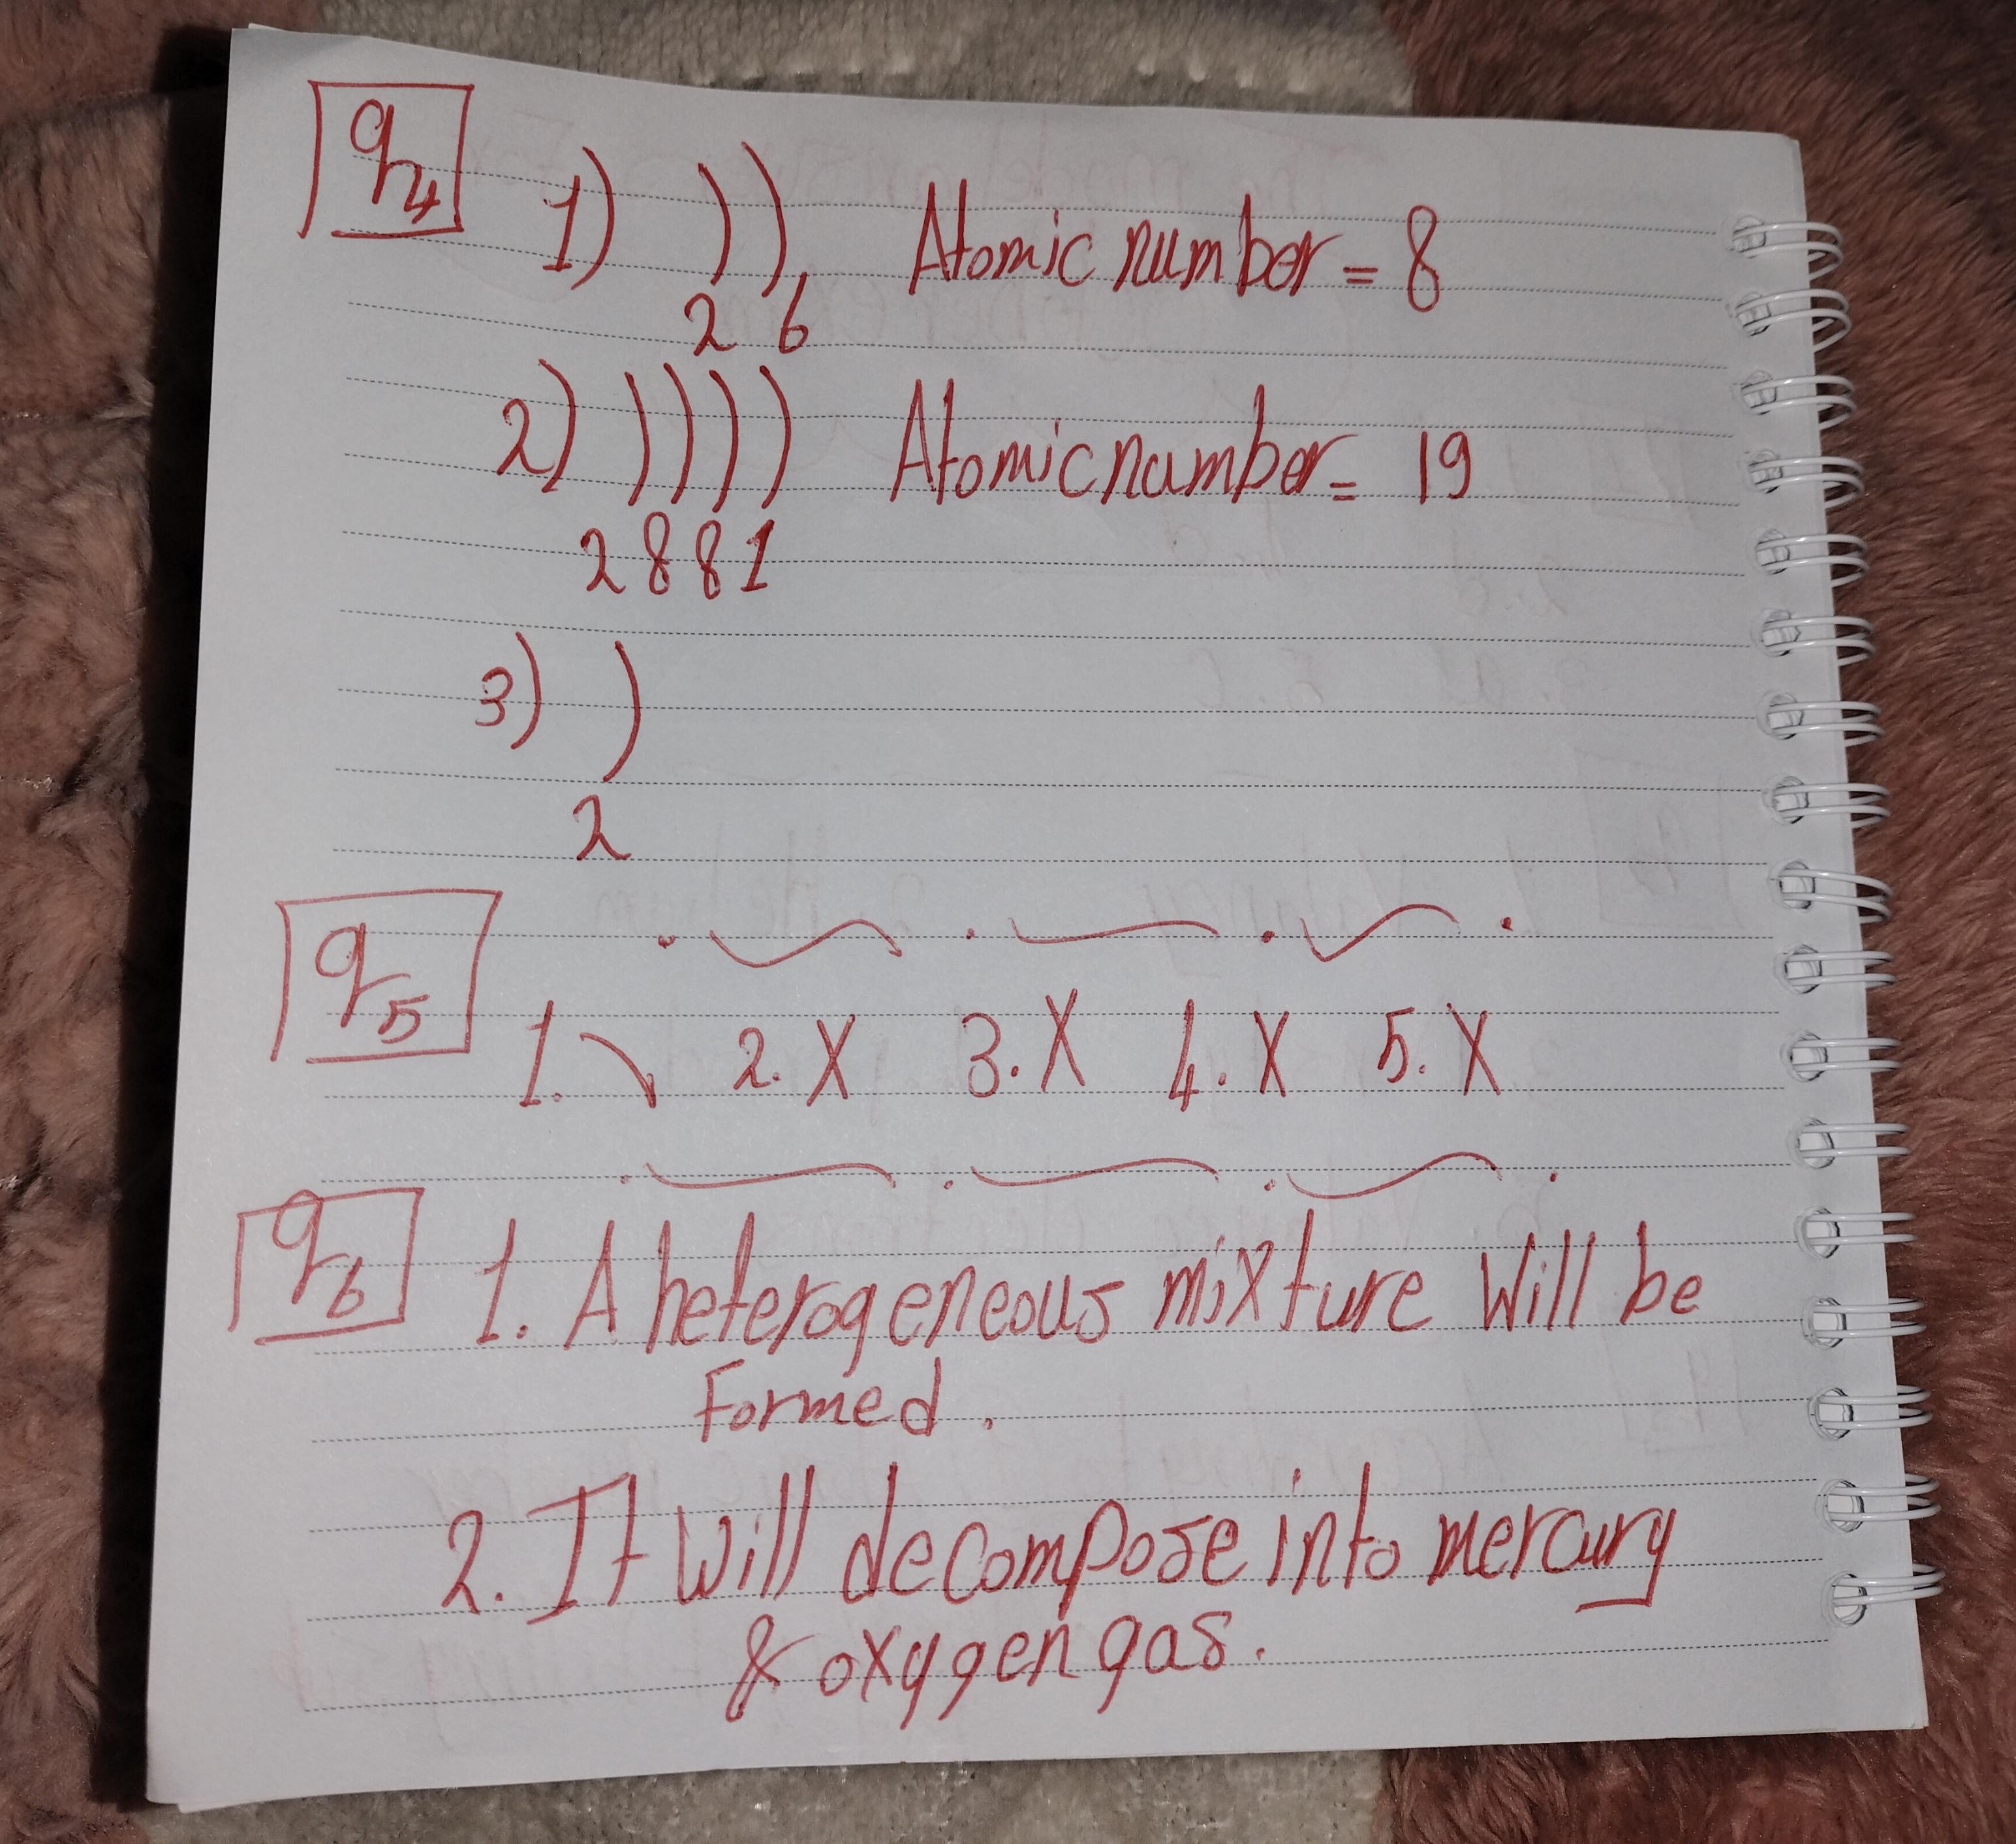 q4
1) ) ) , Atomic number = 8
2 6
2) ) ) ) ) Atomic number = 19
2 8 8 1
3) )
2
q5
1. ✓ 2. X 3. X 4. X 5. X
q6
1. A heterogeneous mixture will be
formed.
2. It will decompose into mercury
& oxygen gas.